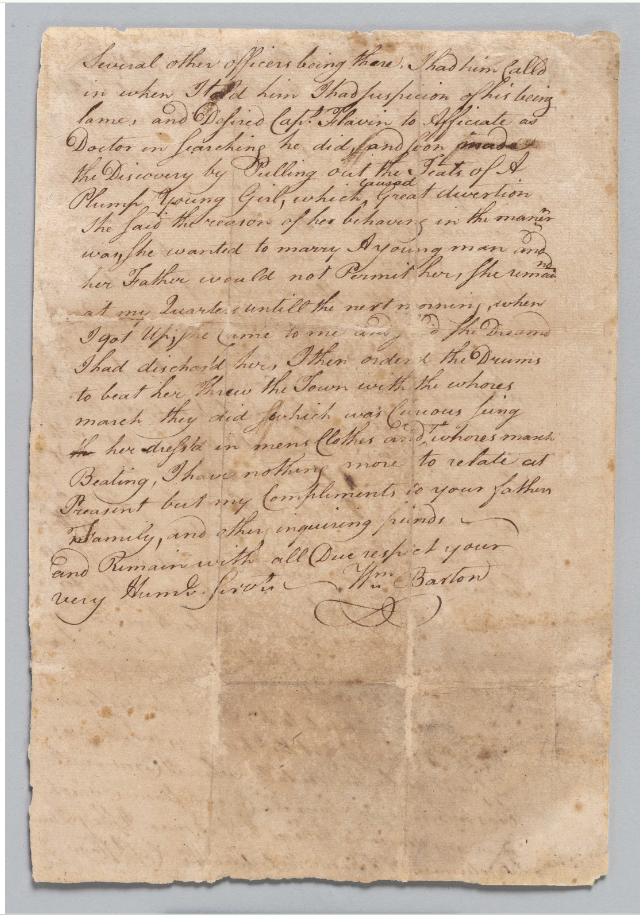 Several other officers being there. I had him Calld
in when I told him I had suspicion of his being
lame, and Desired Capt. Flavin to Afficiate as
Doctor in Searching he did, and soon made
the Discovery by Pulling out the Teats of A
Plump Young Girl, which caused Great divertion
She said the reason of her behaving in the maner
was, she wanted to marry A young man and
her Father would not Permit her, she
at my Quarters untill the next morning, when
I got Up, she Came to me and she Dreamd
I had dischard her, I then orderd the Drums
to beat her threw the Town with the whores
march they did which was Curious
th her dressd in mens Clothes and whores march
Beating, I have nothing more to relate at
Preasent but my Compliments to your fathers
Family, and other inquiring frinds
and Remain with all Due respect your
very Humb. Servt. Wm. Barton